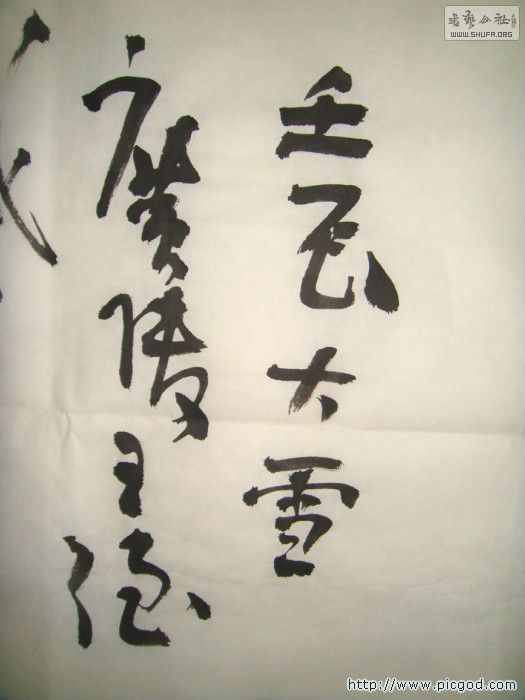 壬辰大雪
廣陵王德
书艺公社
WWW.SHUFA.ORG
http://www.picgod.com